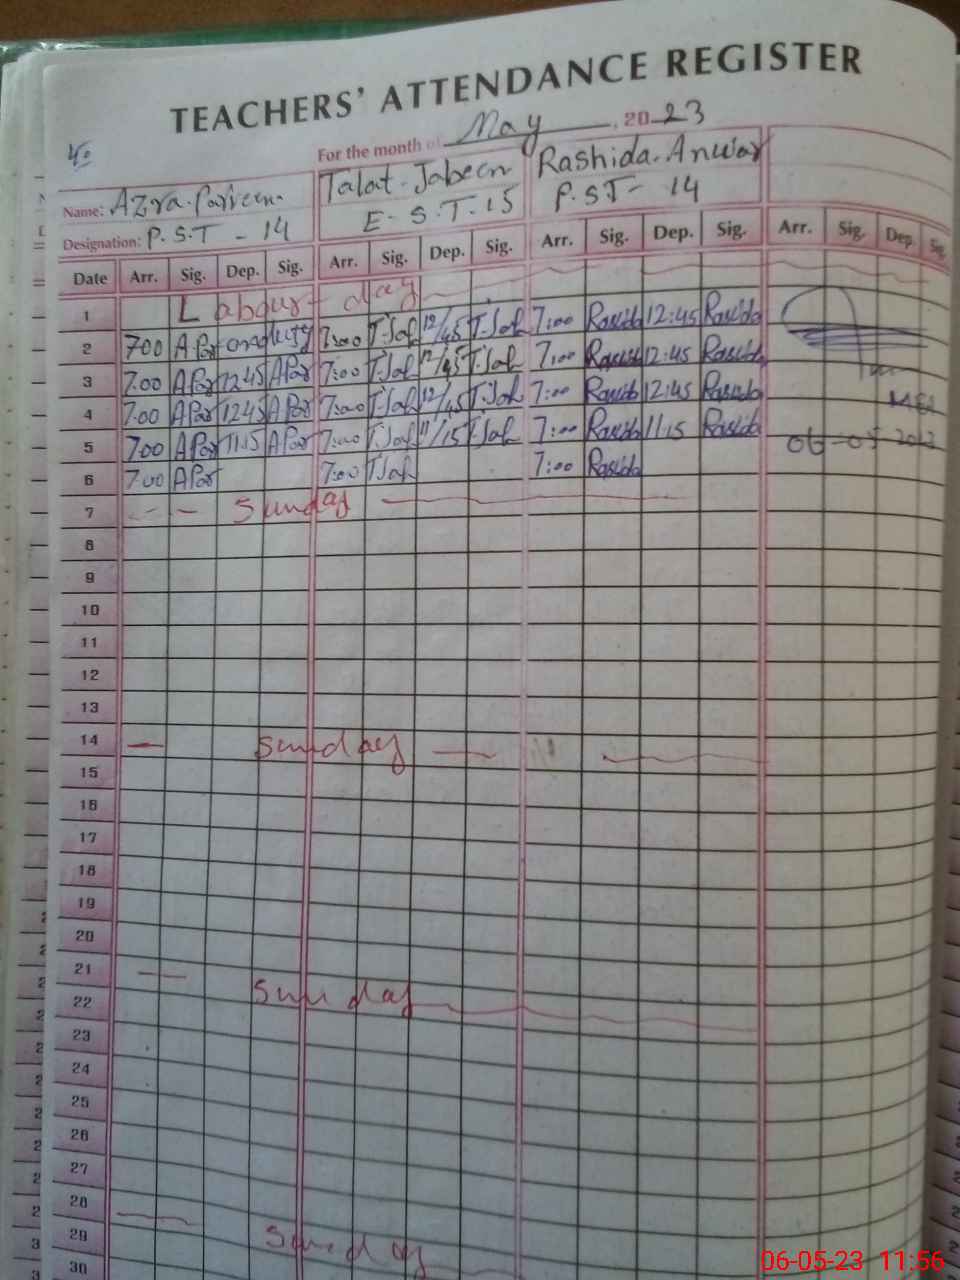 TEACHERS' ATTENDANCE REGISTER
For the month of May, 2023
Name: Azra Parveen Talat Jabeen Rashida Anwar
Designation: P.S.T - 14 E.S.T-15 P.S.T-14
Date Arr. Sig. Dep. Sig. Arr. Sig. Dep. Sig. Arr. Sig. Dep. Sig. Arr. Sig. Dep. Sig.
1 Labour day
2 7.00 A Par on duty 7:00 T.Jab 12/45 T.Jab 7:00 Rashida 12:45 Rashida
3 7.00 A Par 12.45 A Par 7:00 T.Jab 12/45 T.Jab 7:00 Rashida 12:45 Rashida
4 7.00 A Par 12.45 A Par 7:00 T.Jab 12/45 T.Jab 7:00 Rashida 12:45 Rashida
5 7.00 A Par 11.15 A Par 7:00 T.Jab 11/15 T.Jab 7:00 Rashida 11:15 Rashida 06-05-2023
6 7.00 A Par 7:00 T.Jab 7:00 Rashida
7 Sunday
8
9
10
11
12
13
14 Sunday
15
16
17
18
19
20
21 Sunday
22
23
24
25
26
27
28 Sunday
29
30
06-05-23 11:56